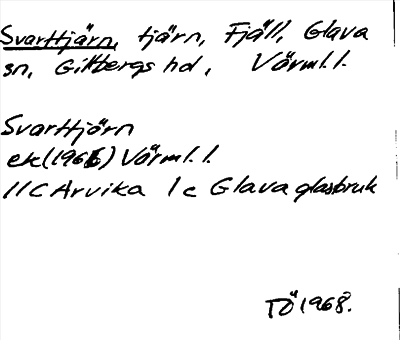 Svarttjärn, tjärn, Fjäll, Glava
sn, Gillbergs hd, Värml. l.
Svarttjärn
ek (1966) Värml. l.
11C Arvika 1c Glava glasbruk
TÖ 1968.